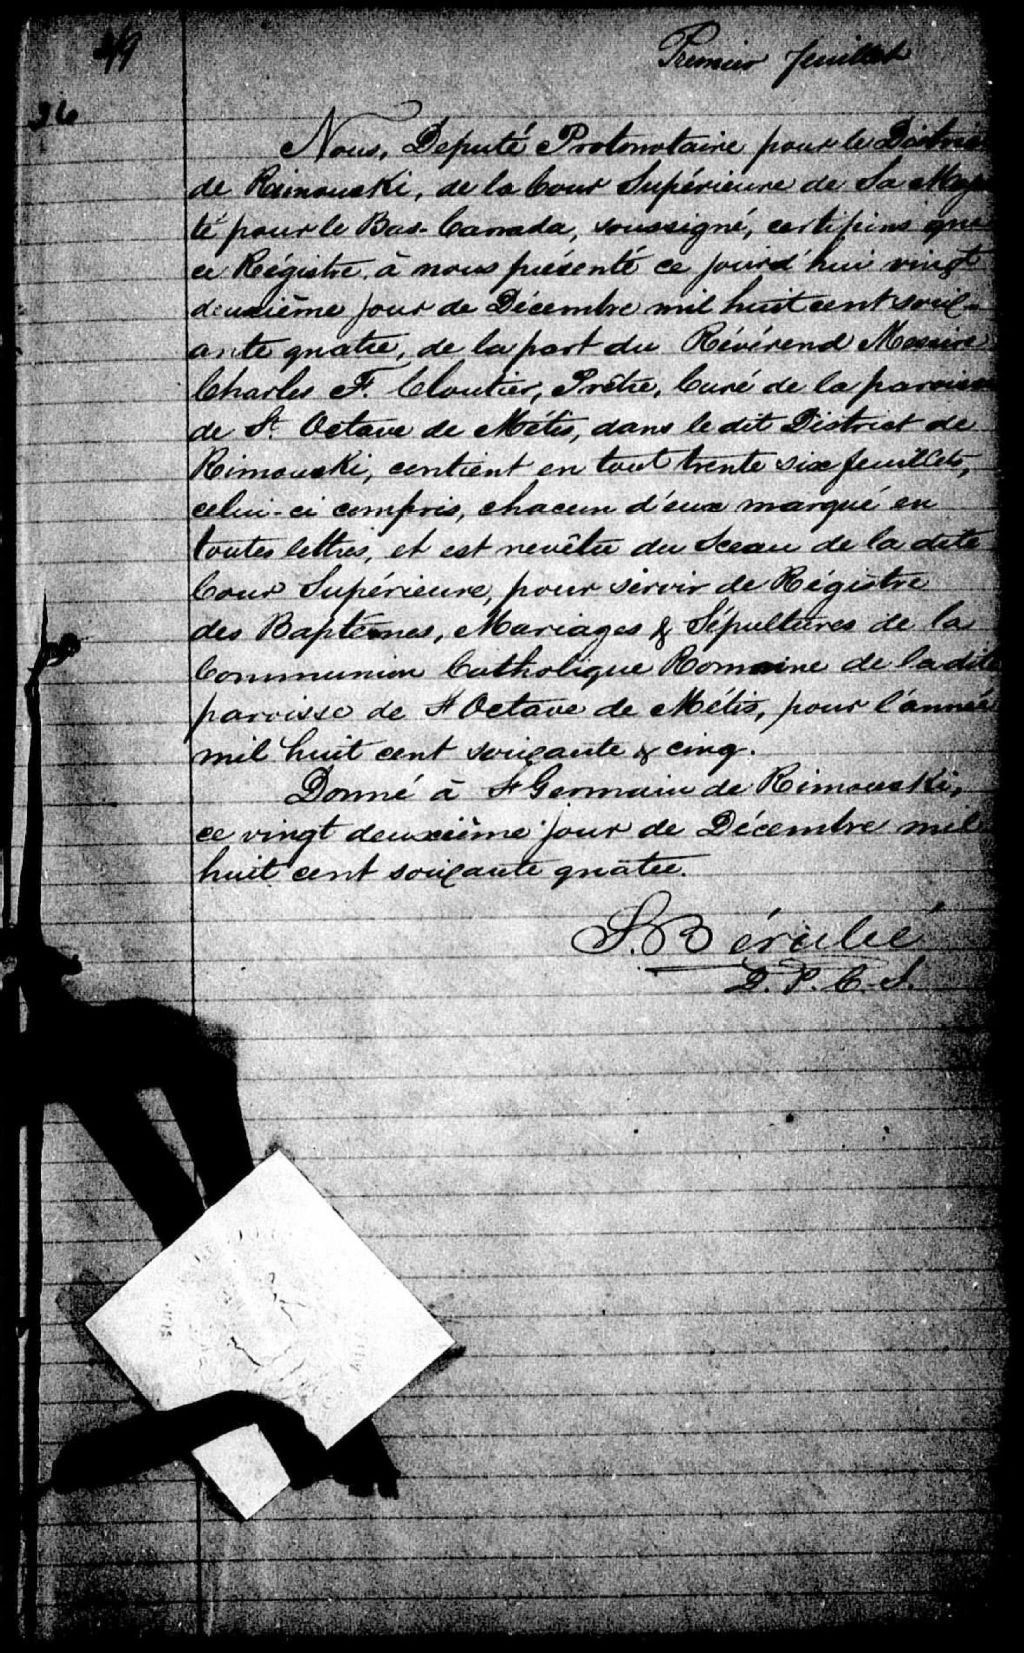 49
Premier feuillet
36
Nous, Deputé Protonotaire pour le District
de Rimouski, de la Cour Supérieure de Sa Majes
té pour le Bas-Canada, soussigné, certifions que
ce Régistre à nous présenté ce jourd'hui vingt
deuxième jour de Décembre mil huit cent soix-
ante quatre, de la part du Révérend Messire
Charles F. Cloutier, Prêtre, Curé de la paroisse
de St. Octave de Métis, dans le dit District de
Rimouski, contient en tout trente six feuillets,
celui-ci compris, chacun d'eux marqué en
toutes lettres, et est revêtu du Sceau de la dite
Cour Supérieure, pour servir de Régistre
des Baptêmes, Mariages & Sépultures de la
Communion Catholique Romaine de la dite
paroisse de St Octave de Métis, pour l'année
mil huit cent soixante & cinq.
Donné à St Germain de Rimouski,
ce vingt deuxième jour de Décembre mil
huit cent soixante quatre.
S. Bérubé
D. P. C. S.